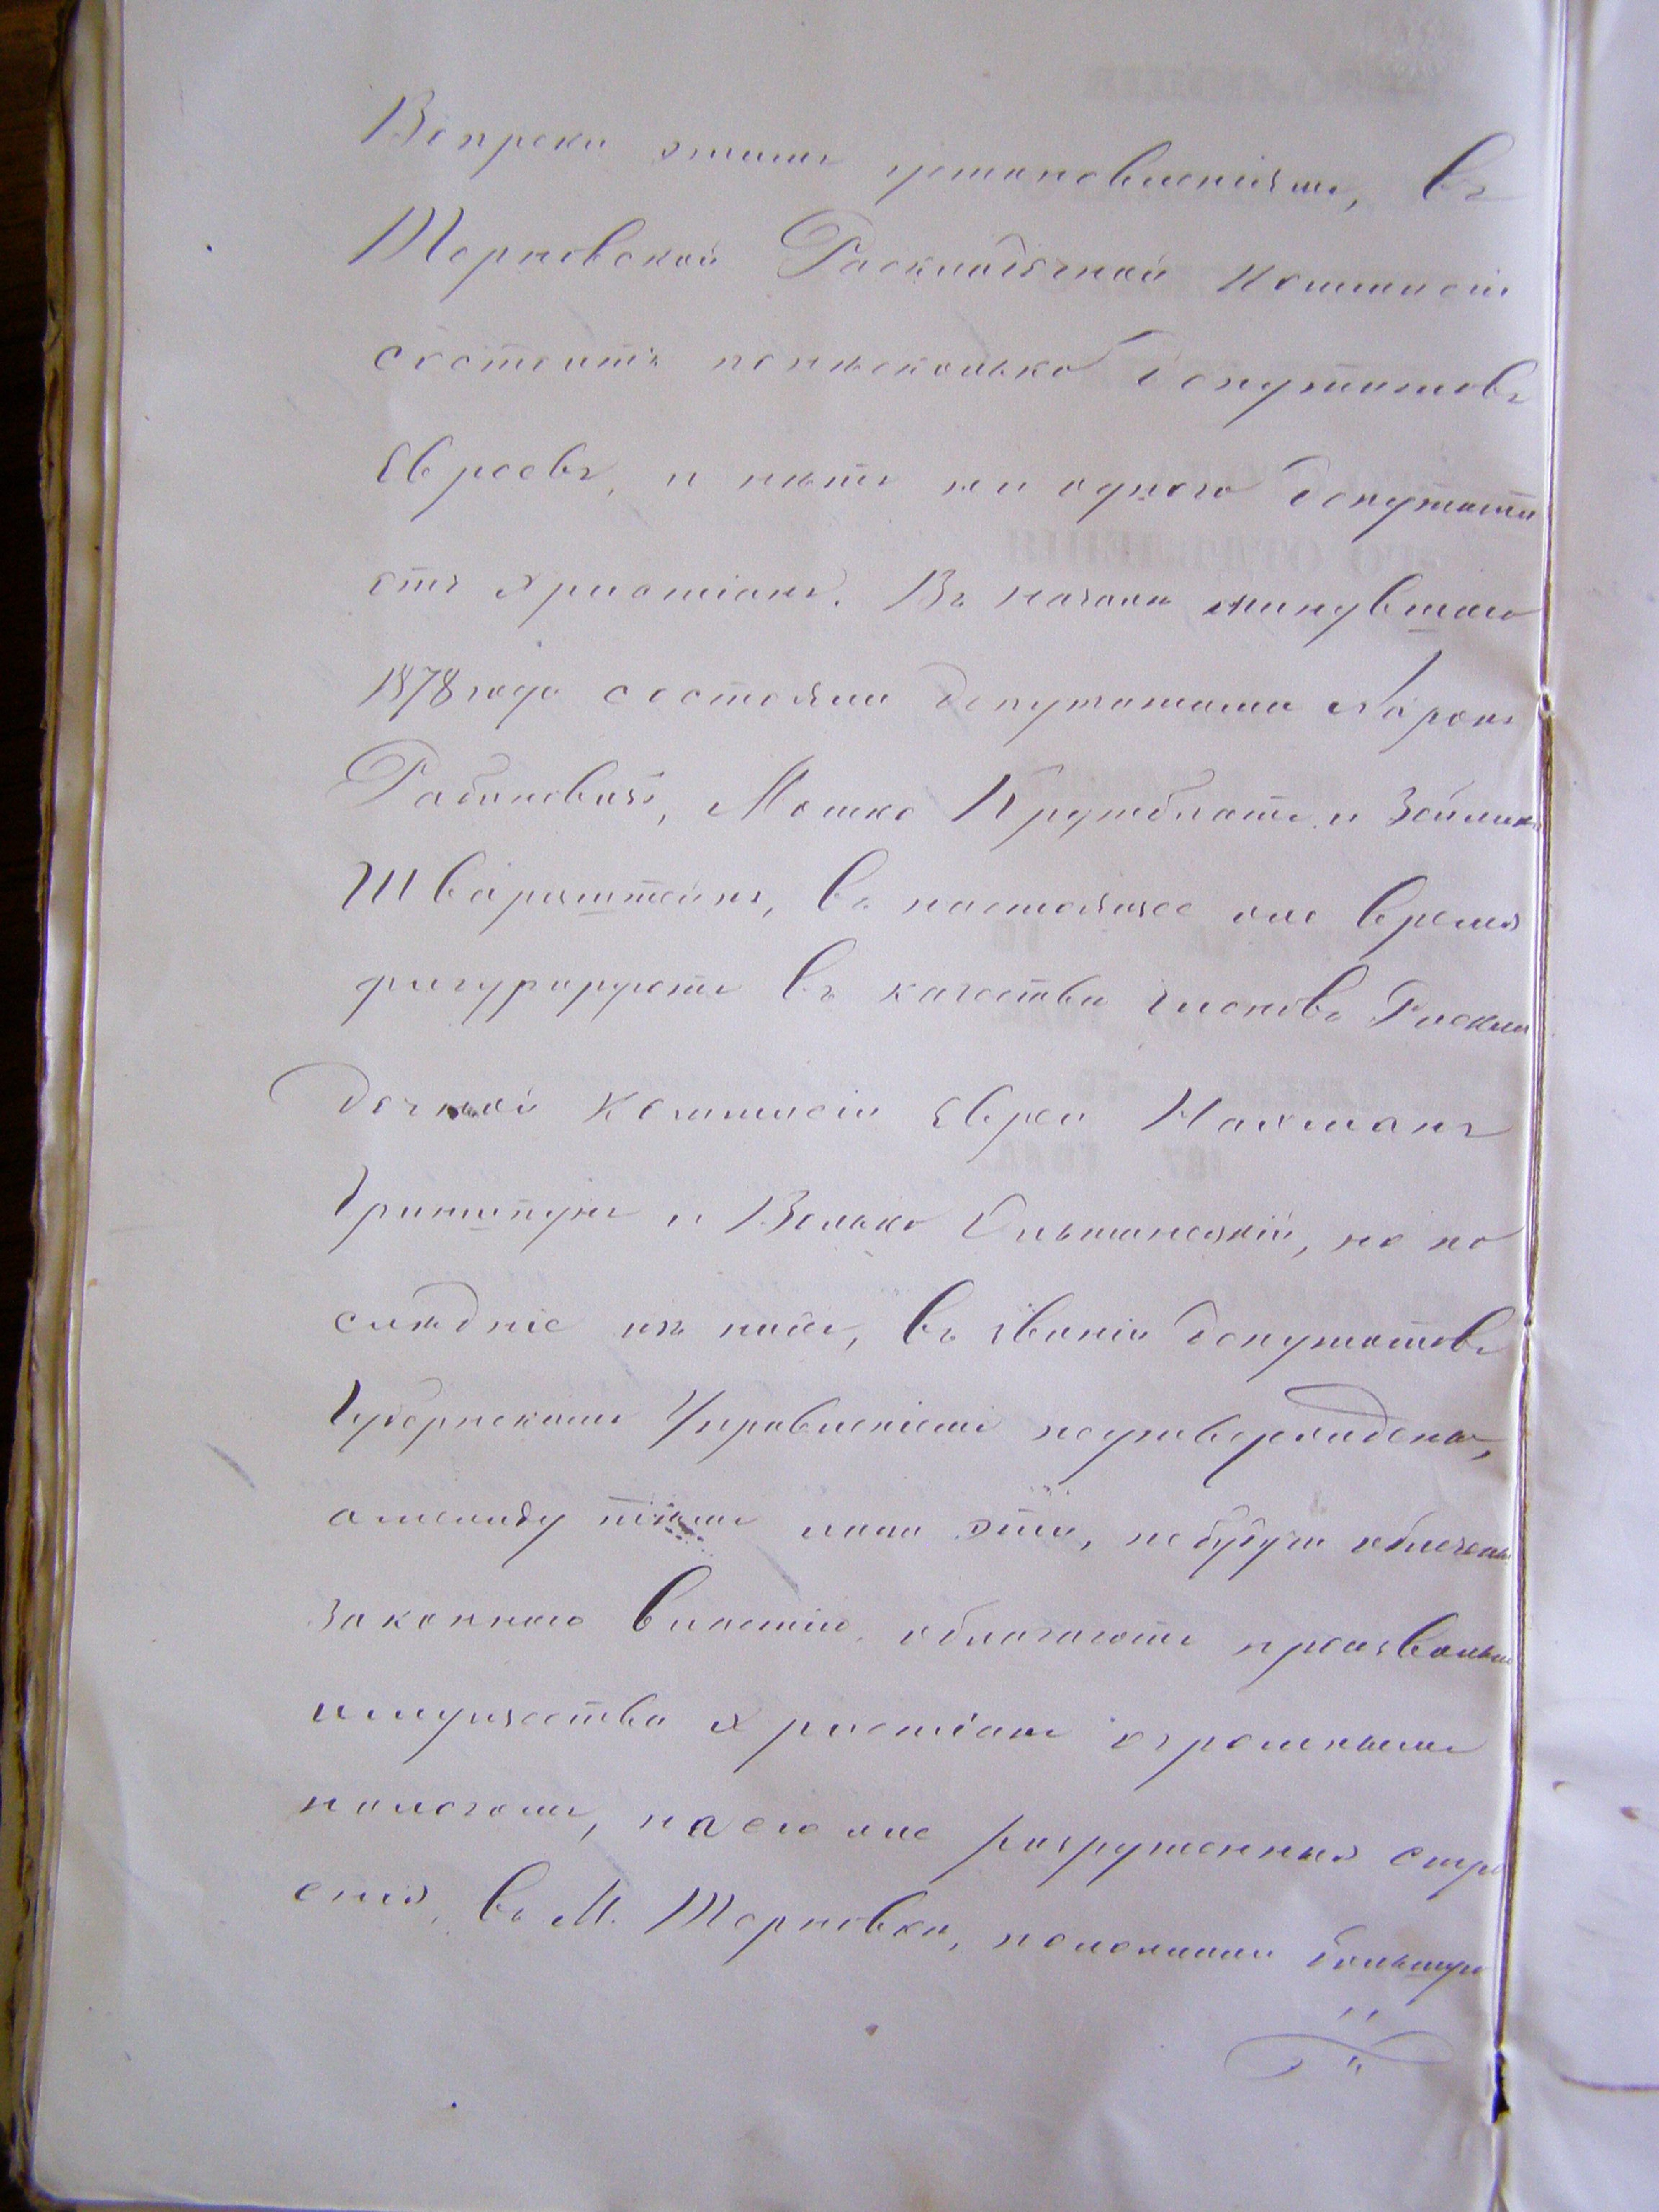 Вопреки этимъ установленіямъ, въ
Терновской Раскладочной Коммисіи
состоитъ понѣсколько депутатовъ
Евреевъ, и нѣтъ ни одного депутата
отъ Христіанъ. Въ началѣ минувшаго
1878 года состояли депутатами Аронъ
Рабиновичъ, Мошко Крутблатъ и Зейликъ
Шварцштейнъ, въ настоящее же время
фигурируютъ въ качествѣ членовъ Раскла
дочной Коммисіи Евреи Нахманъ
Гринштунъ и Велько Ольшанскій, но по
слѣдніе изъ нихъ, въ званіи депутатовъ
Губернскимъ Управленіемъ неутверждены,
а между тѣмъ лица эти, небудучи облечены
законною властію, облагаютъ произвольно
имущества Христіанъ огромными
налогами, на самые разрушенныя стро
енія, въ М. Терновкѣ, положили большую